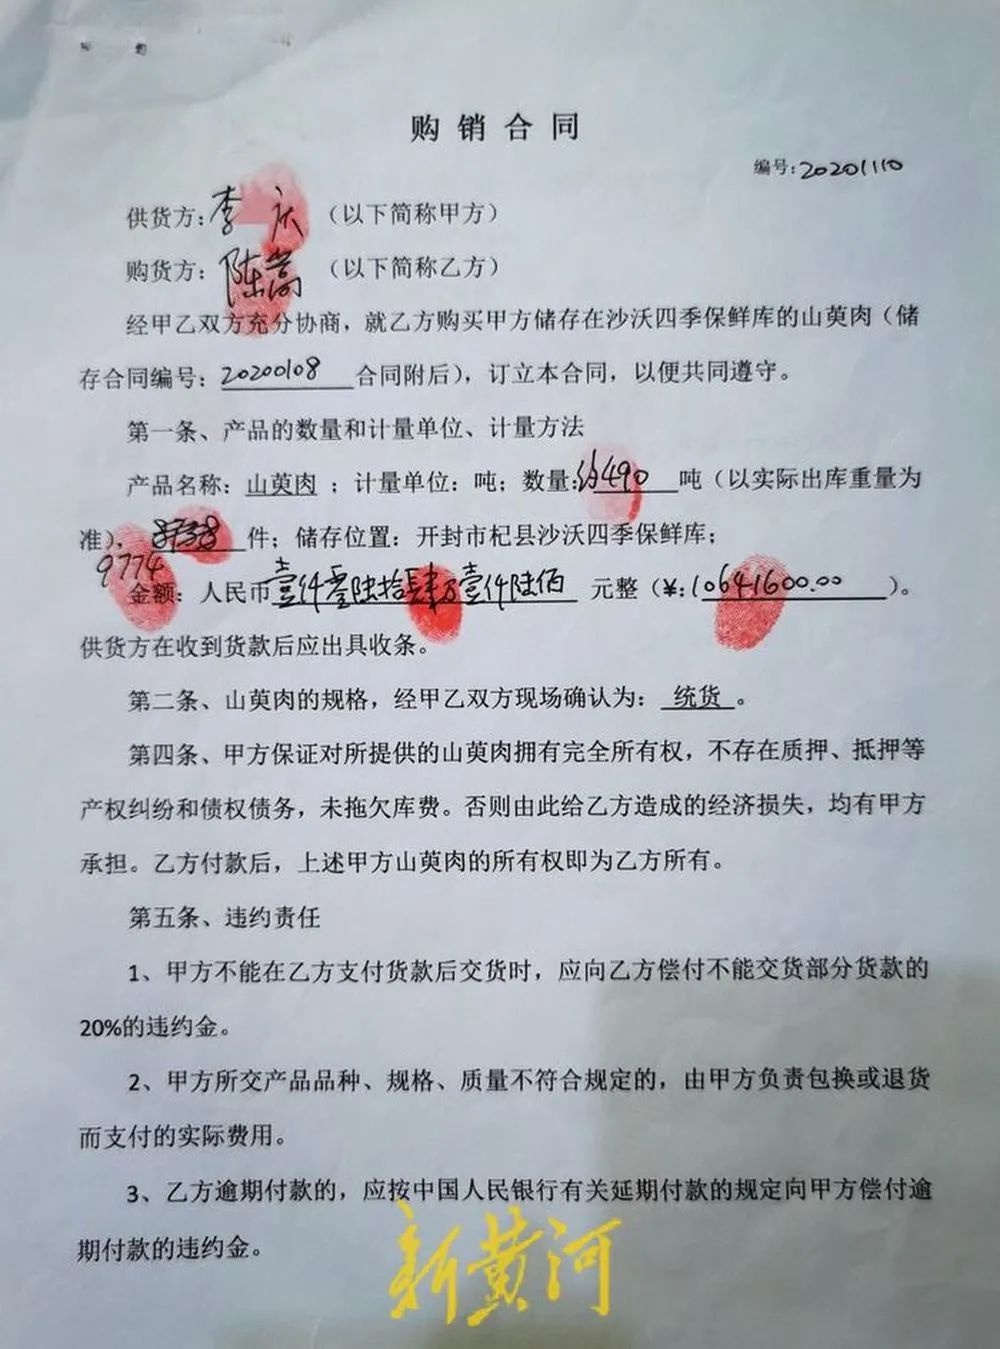 购销合同
编号:20201110
供货方:李庆(以下简称甲方)
购货方:陈嵩(以下简称乙方)
经甲乙双方充分协商，就乙方购买甲方储存在沙沃四季保鲜库的山萸肉（储
存合同编号：20200108合同附后），订立本合同，以便共同遵守。
第一条、产品的数量和计量单位、计量方法
产品名称：山萸肉；计量单位：吨；数量:约490吨（以实际出库重量为
准），件；储存位置：开封市杞县沙沃四季保鲜库；
9774
金额：人民币壹仟零陆拾肆万壹仟陆佰元整（¥:10641600.00）。
供货方在收到货款后应出具收条。
第二条、山萸肉的规格，经甲乙双方现场确认为：统货。
第四条、甲方保证对所提供的山萸肉拥有完全所有权，不存在质押、抵押等
产权纠纷和债权债务，未拖欠库费。否则由此给乙方造成的经济损失，均有甲方
承担。乙方付款后，上述甲方山萸肉的所有权即为乙方所有。
第五条、违约责任
1、甲方不能在乙方支付货款后交货时，应向乙方偿付不能交货部分货款的
20%的违约金。
2、甲方所交产品品种、规格、质量不符合规定的，由甲方负责包换或退货
而支付的实际费用。
3、乙方逾期付款的，应按中国人民银行有关延期付款的规定向甲方偿付逾
期付款的违约金。
新黄河